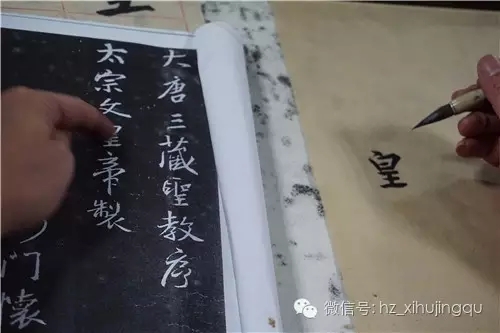 大唐三藏聖教序
太宗文皇帝製
門懐
皇
微信号: hz_xihujingqu